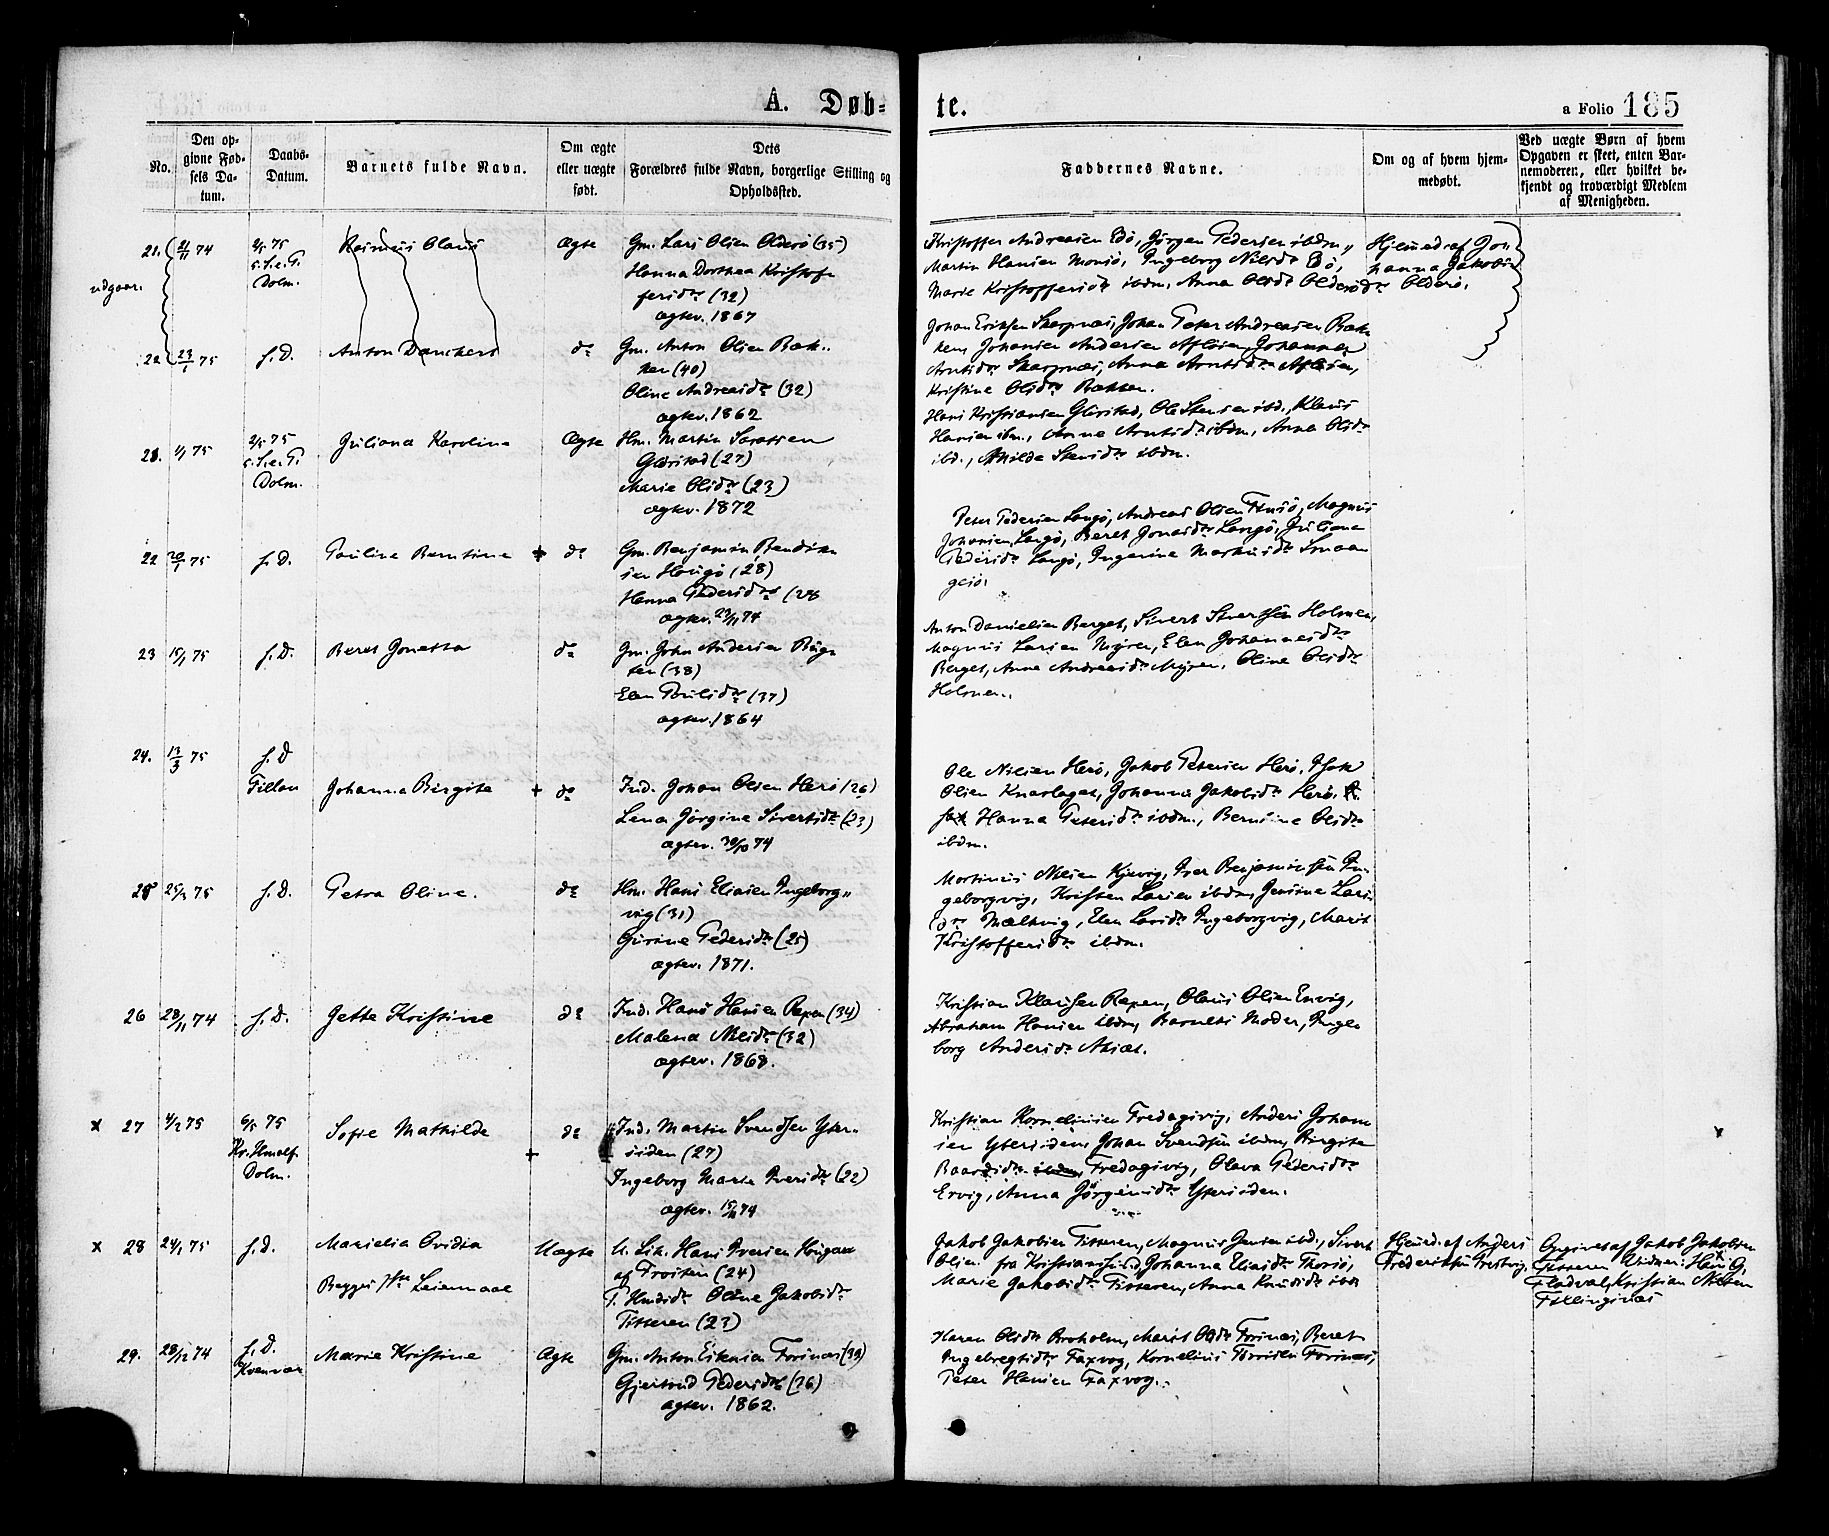 A. Døb-
te.
a Folio 185
No.
Den op-
givne Fød-
sels Da-
tum.
Daabs-
Datum.
Barnets fulde Navn.
Om ægte
eller uægte
født.
Dets
Forældres fulde Navn, borgerlige Stilling og
Opholdssted.
Faddernes Navne.
Om og af hvem hjem-
medøbt.
Ved uægte Børn af hvem
Opgaven er skeet, enten Bar-
nemoderen, eller hvilket be-
kjendt og troværdigt Medlem
af Menigheden.
udgaar.
21. 21/11 74
2/5 75
Dolm.
Rasmus Olaus
Ægte
Gm. Lars Olsen Olderø (35)
Hanna Dorthea Kristof-
fersdtr (32)
ægtev. 1867
Kristoffer Andreasen Edø, Jørgen Pedersen ibdm.,
Martin Hansen Monsø, Ingeborg Nilsdtr Edø,
Marie Kristoffersdtr ibdm. Anna Olsdtr Olderø
Hjemed. af Jo-
hanna Jakobs-
dtr Olderø.
22 23/1 75
s. D.
Anton Danchert
do
Gm. Anton Olsen Bæk-
ken (40)
Oline Andreasdtr (32)
ægtev. 1862
Johan Eriksen Skarpnæs, Johan Peter Andreasen Bæk-
ken, Johannes Andersen Afløsen, Johanna
Arntsdtr Skarpnæs, Anna Arntsdtr Afløsen,
Kristine Olsdtr Bækken.
21. 1/1 75
2/5 75
Dolm.
Juliana Karoline
Ægte
Hm. Martin
Glørstad (27)
Marie Olsdtr (23)
ægtev. 1872
Hans Kristiansen Glørstad, Ole Stensen ibd., Klaus
Hansen ibm., Anne Arntsdtr ibdm, Anna Olsdtr
ibd., Stensdtr ibdm.
22 20/1 75
s. D.
Pauline Berntine +
do
Gm. Benjamin Bendik-
sen Haugø (28)
Hanna Pedersdtr (28
ægtev. 23/11 74
Peter Pedersen Langø, Andreas Olsen, Magnus
Johansen Langø, Beret Jonasdtr Langø, Juliana
Pedersdtr Langø, Ingerine Markusdtr Smaan
gesø.
23 15/1 75
s. D.
Beret Jonetta
do
Gm. John Andersen Bug-
ten (38)
Elen Poulsdtr (37)
ægtev. 1864
Anton Danielsen Berget, Sivert Sivertsen Holmen,
Magnus Larsen Myren, Elen Johannesdtr
Berget, Anne Andreasdtr Myren, Oline Olsdtr
Holmen.
24. 13/3 75
s. D
Fillan
Johanna Birgitta +
do
Ind. Johan Olsen Herø (26)
Lena Jørgine Sivertsdtr (23)
ægtev. 30/10 74
Ole Nilsen Herø, Jakob Petersen Herø, Isak
Olsen Knarlaget, Johanna Jakobsdtr Herø,
Hanna Petersdtr ibdm., Berntine Olsdtr
ibdm.
25 25/2 75
s. D.
Petra Oline.
do
Hm. Hans Eliasen Ingeborg-
vig (31)
Gurine Pedersdtr (25)
ægtev. 1871.
Martinus Nilsen Kjervig, Iver Benjaminsen In-
geborgvig, Kristen Larsen ibdm, Jensine Lars-
dtr Mælkvig, Elen Larsdtr Ingeborgvig, Marit
Kristoffersdtr ibdm.
26 28/11 74
s. D.
Jette Kristine
do
Ind. Hans Hansen Ræpen (34)
Malena Nilsdtr (32)
ægtev. 1868.
Kristian Klausen Ræpen, Olaus Olsen Ervig,
Abraham Hansen ibdm, Barnets Moder, Inge-
borg Andersdtr
x 27 4/2 75
6/5 75
Dolm.
Sofie Mathilde +
do
Ind. Martin Svendsen Yter-
siden (27)
Ingeborg Marta Iversdtr (22)
ægtev. 15/11 74
Kristian Korneliussen Fredagsvig, Anders Johan-
sen Ytersiden, Johan Svendsen ibdm, Birgite
Baardsdtr ibdm, Fredagsvig, Olava Pedersdtr
Ervig, Anna Jørgensdtr Ytersiden.
x
x 28 24/1 75
s. d.
Marselia Ovidia
Begges 1ste Leiermaal
Uægte
U. Sk. Hans Iversen Haugan
af Frosten (24)
P. Oline Jakobsdtr
Titteren (23)
Jakob Jakobsen Titteren, Magnus Jensen ibd., Sivert
Olsen fra Kristianssund, Johanna Eliasdtr Thorsø,
Marie Jakobsdtr Titteren, Anna Knudsdtr ibd
Hjemed. af Anders
Frederiksen
Opgivet af Jakob Jakobsen
Titteren Vidner: Hans G.
Fladval, Kristian Nilsen
Fillingsnæs
29. 28/12 74
s. D.
Kvenvær
Marie Kristine
Ægte
Gm. Anton Forsnæs (39)
Gjertrud Pedersdtr (36)
ægtev. 1862.
Karen Olsdtr Broholm, Marit Olsdtr Forsnæs, Beret
Ingebregtsdtr Faxvog, Kornelius Forsnæs,
Peter Hansen Faxvog.